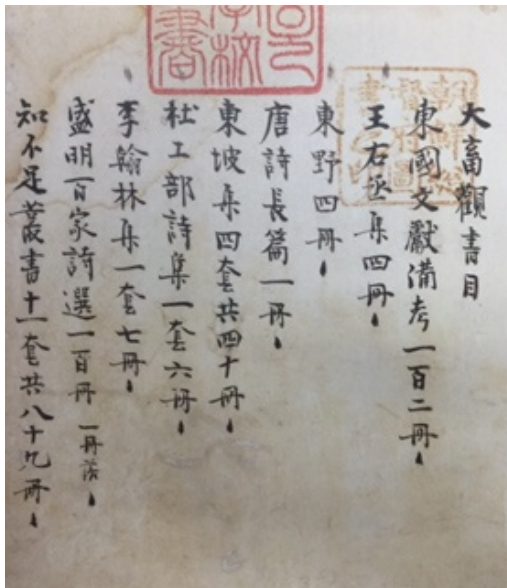 大畜觀書目
東國文獻備考一百二冊
王右丞集四冊
東野四冊
唐詩長篇一冊
東坡集四套共四十冊
杜工部詩集一套六冊
李翰林集一套七冊
盛明百家詩選一百冊 一冊落
知不足叢書十一套共八十九冊